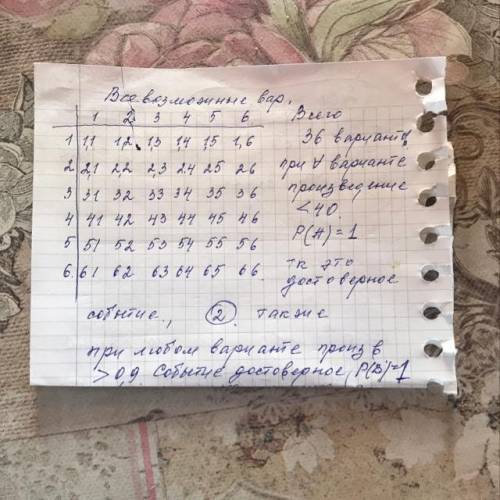 Все возможные вар.
1 2 3 4 5 6 Всего
1 11 12 13 14 15 1,6 36 варианта,
2 21 22 23 24 25 26 при ∀ варианте
3 31 32 33 34 35 36 произведение
4 41 42 43 44 45 46 <40.
5 51 52 53 54 55 56 P(A)=1
6. 61 62 63 64 65 66. т к это
достоверное
событие., ② также
при любом варианте произв
> 0,9 Событие достоверное, P(B)=1